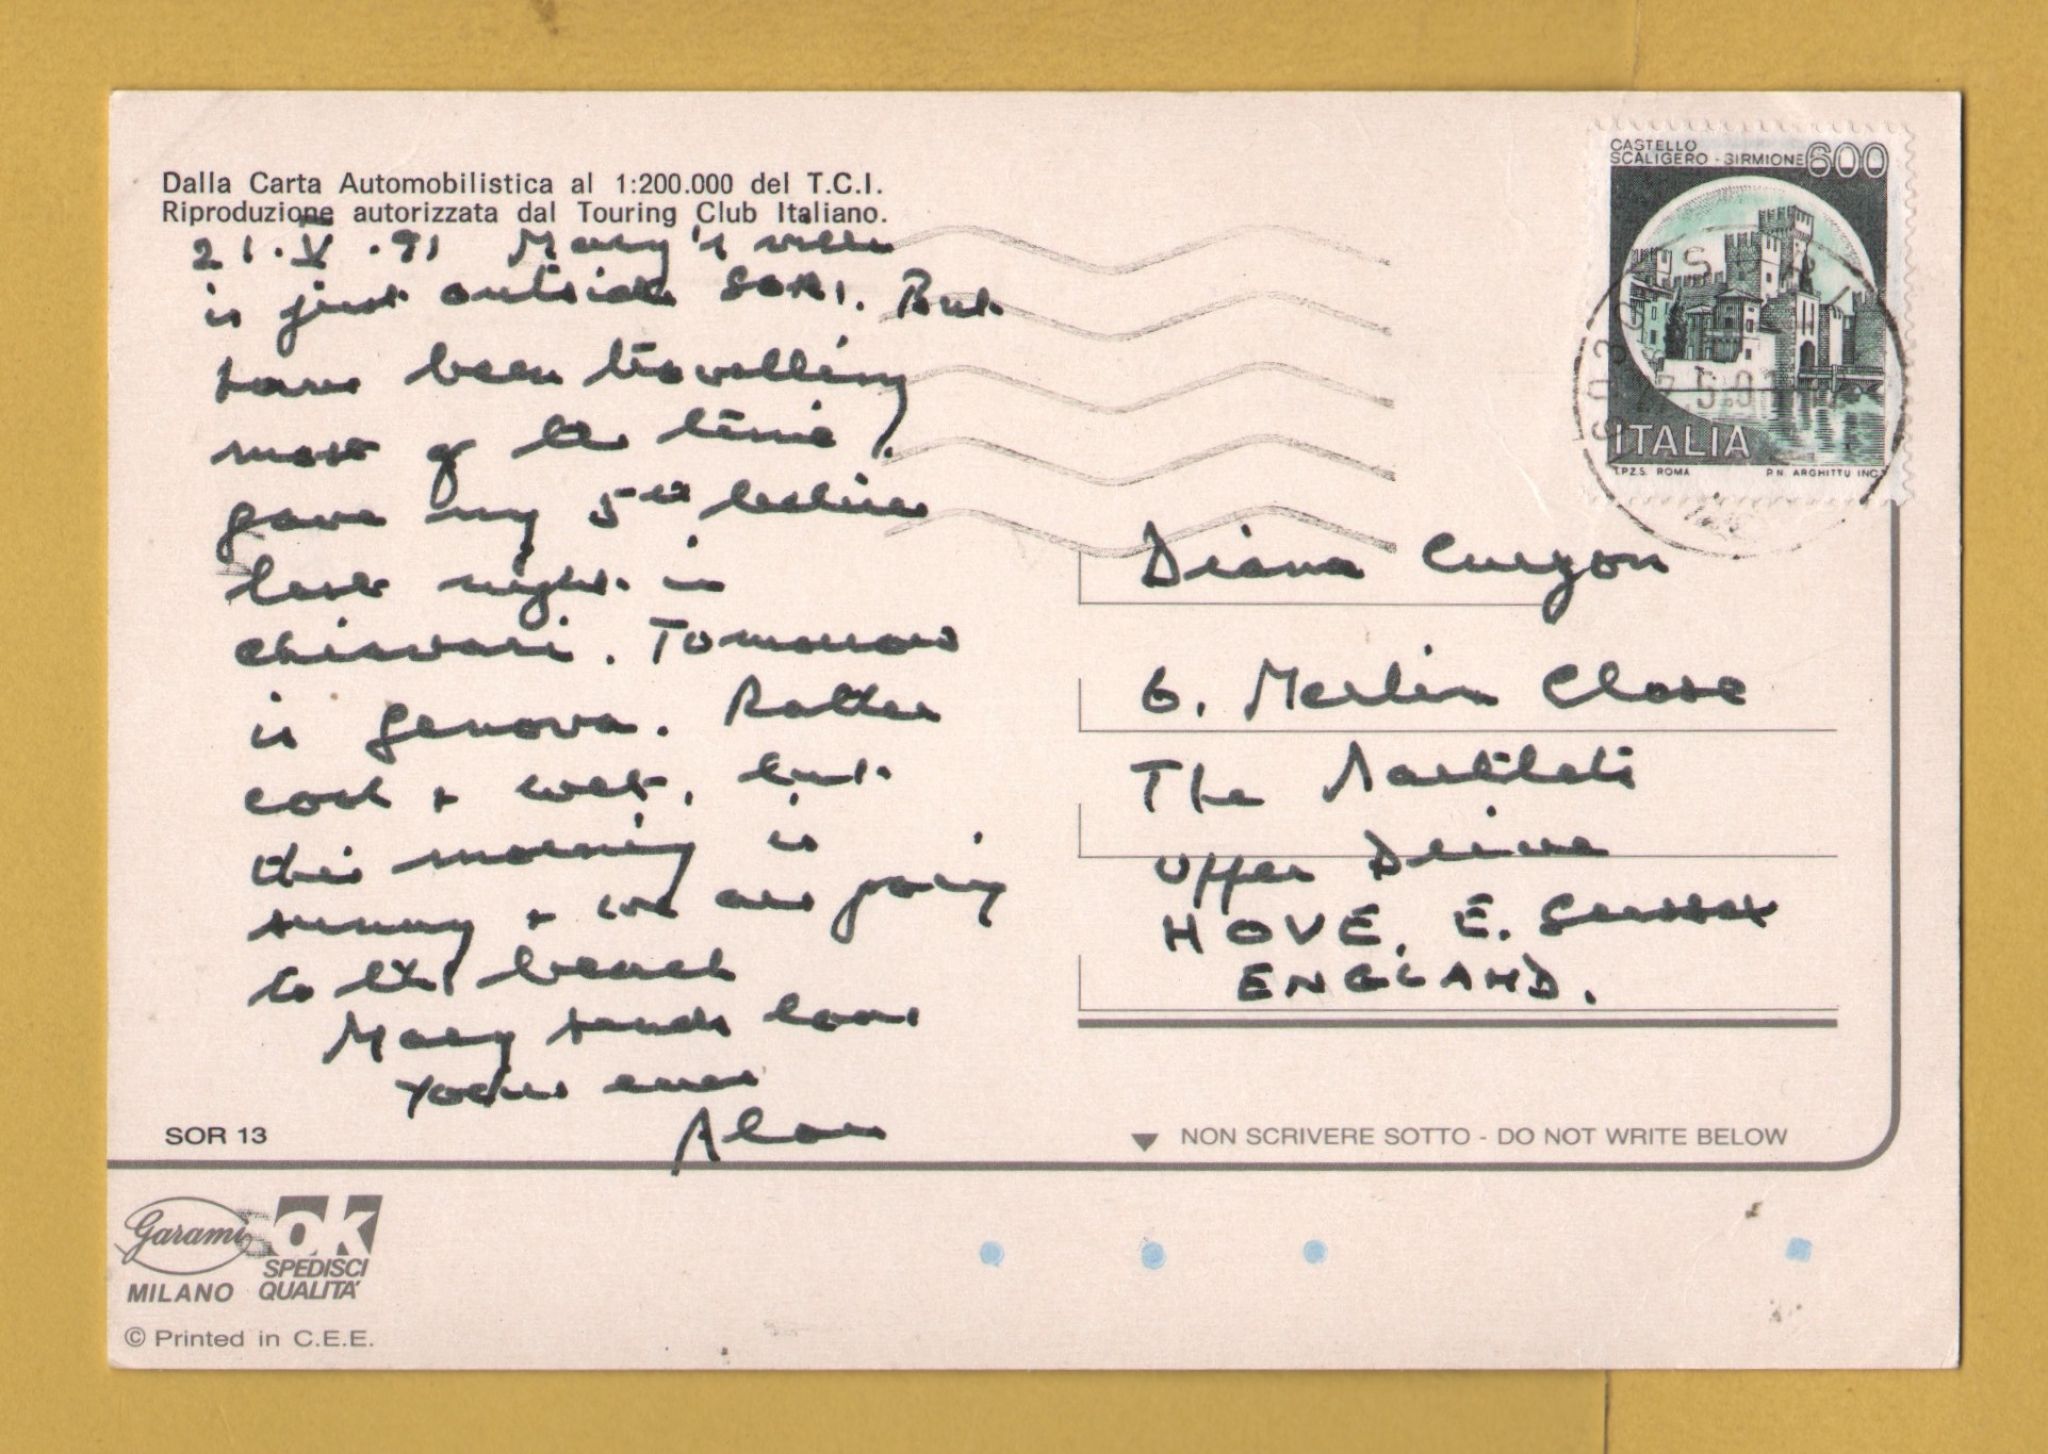 Dalla Carta Automobilistica al 1:200.000 del T.C.I.
Riproduzione autorizzata dal Touring Club Italiano.
21.V.91 Mary's villa
is just outside SORI. But
have been travelling
most of the time.
gave my 5th lecture
last night in
Chiavari. Tomorrow
is Genova. Rather
cool + wet, but
this morning is
sunny + we are going
to the beach
Mary sends love
Yours ever
Alan
SOR 13
Garami
MILANO
OK
SPEDISCI
QUALITA'
© Printed in C.E.E.
CASTELLO
SCALIGERO - SIRMIONE 600
ITALIA
I.P.Z.S. ROMA P.N. ARGHITTU INC.
Diana Curzon
6. Merlin Close
The Martlets
Upper Drive
HOVE. E. Sussex
ENGLAND.
NON SCRIVERE SOTTO - DO NOT WRITE BELOW